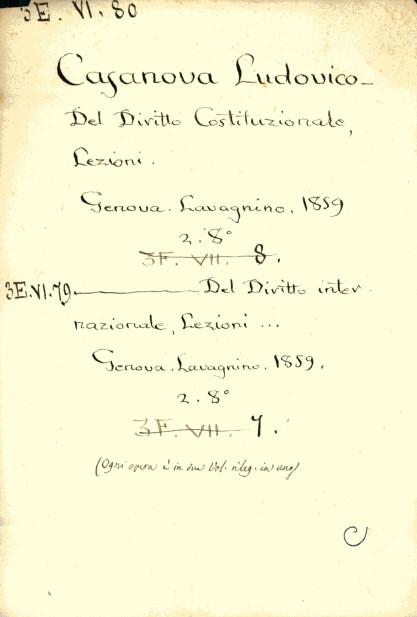 3E. VI. 80
Casanova Ludovico_
Del Diritto Costituzionale,
Lezioni.
Genova. Lavagnino, 1859
2. 8°
3F. VII. 8.
3E.VI.79 Del Diritto inter-
nazionale, Lezioni ...
Genova. Lavagnino. 1859.
2. 8°
3F. VII. 7.
(Ogni opera è in due Vol. rileg. in uno)
C